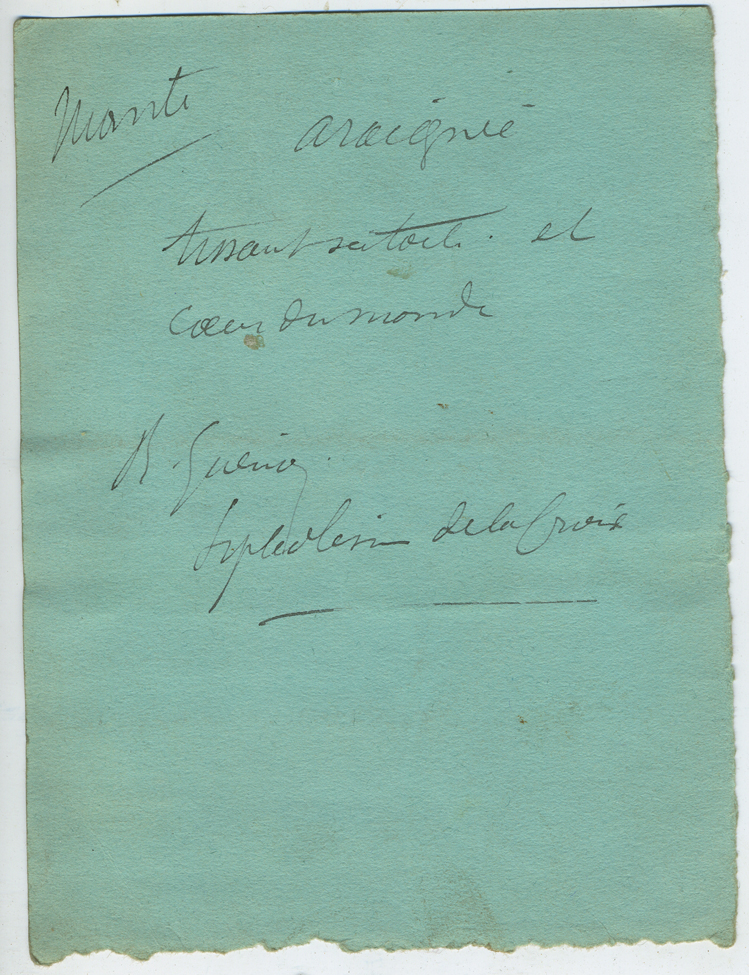 Mante
araignée
tissant sa toile. et
cœur du monde
R. Guénon.
Symbolisme de la Croix